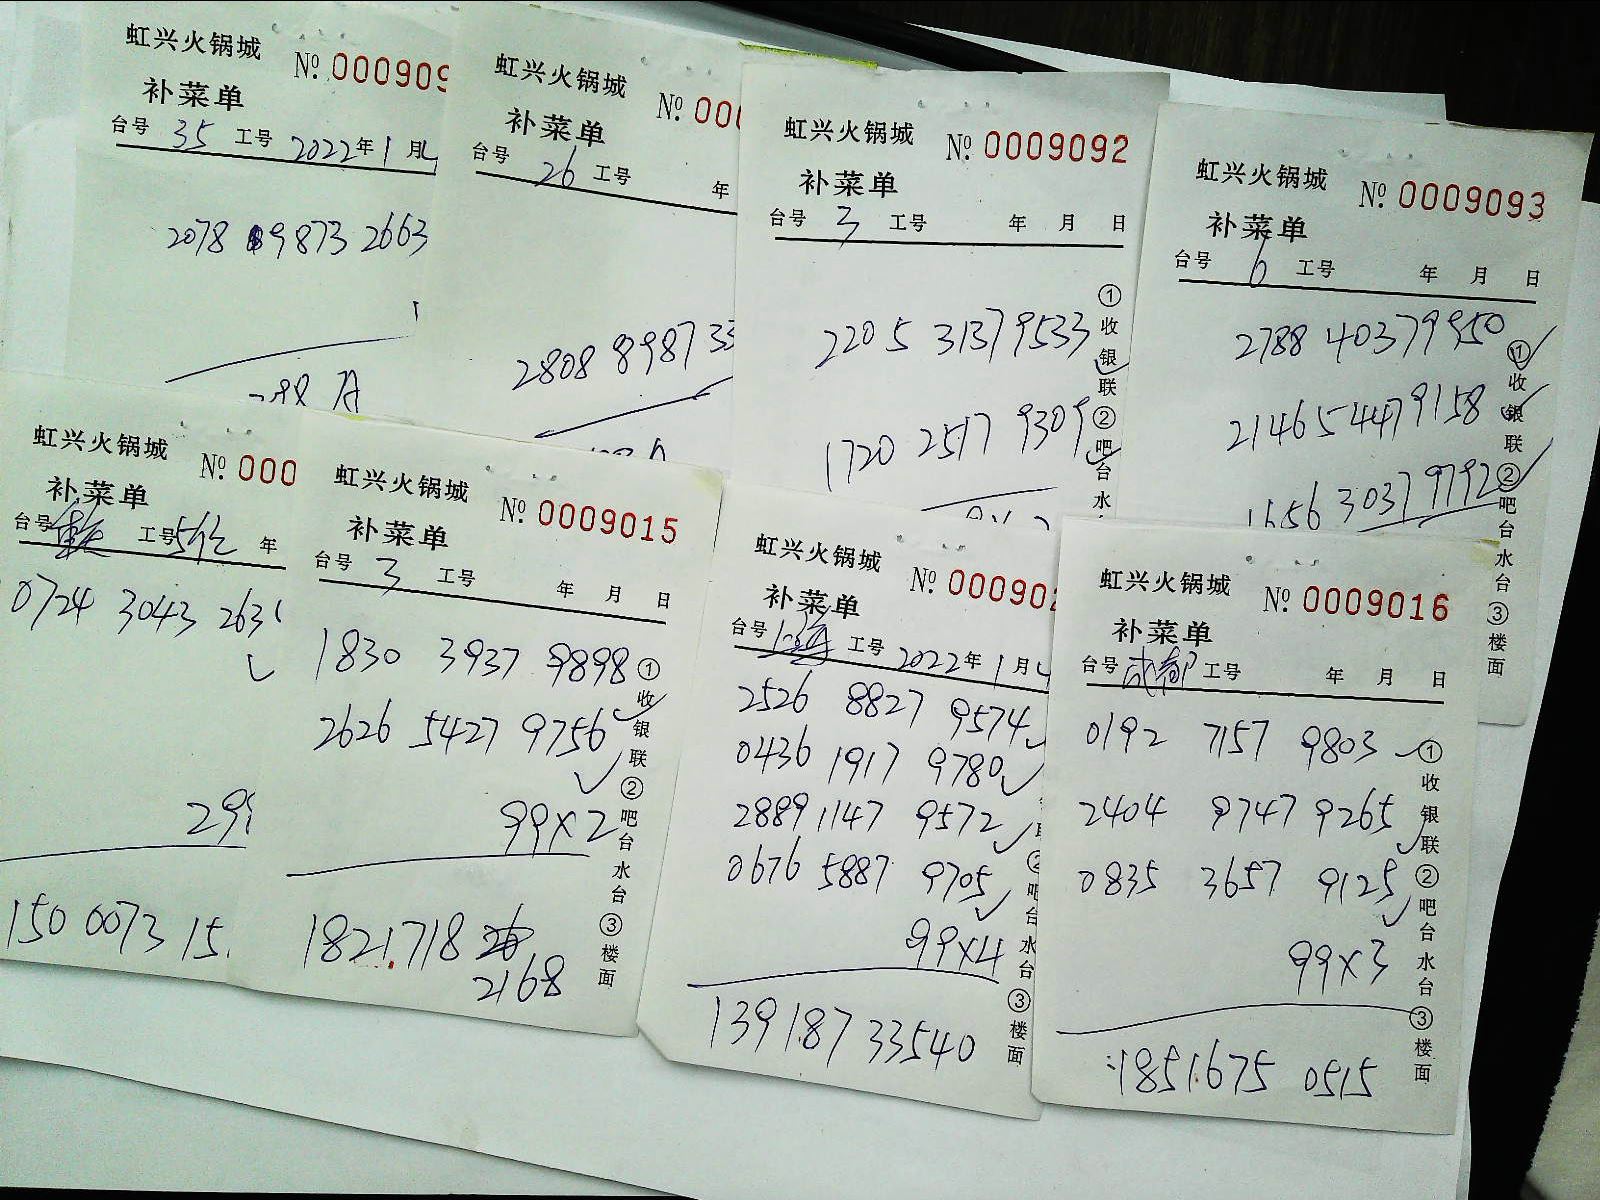 虹兴火锅城
No. 000909
补菜单
台号 35 工号 2022年1月
2078 9873 2663
虹兴火锅城
No. 000
补菜单
台号 26 工号 年
2808 8987 33
虹兴火锅城
No. 0009092
补菜单
台号 3 工号 年 月 日
2205 3137 9533
1720 2517 9309
①收银联②吧台水
虹兴火锅城
No. 0009093
补菜单
台号 6 工号 年 月 日
2788 4037 9950
2146 5447 9158
1656 3037 9792
①收银联②吧台水台③楼面
虹兴火锅城
No. 000
补菜单
台号 工号 年
0724 3043 263
299
150 0073 15
虹兴火锅城
No. 0009015
补菜单
台号 3 工号 年 月 日
1830 3937 9898
2626 5427 9756
99×2
1821.718
2168
①收银联②吧台水台③楼面
虹兴火锅城
No. 000902
补菜单
台号 上海 工号 2022年1月4
2526 8827 9574
0436 1917 9780
2889 1147 9572
0676 5887 9705
99×4
139 187 33540
②吧台水台③楼面
虹兴火锅城
No. 0009016
补菜单
台号 成都 工号 年 月 日
0192 7157 9803
2404 9747 9265
0835 3657 9125
99×3
1851.675 0515
①收银联②吧台水台③楼面